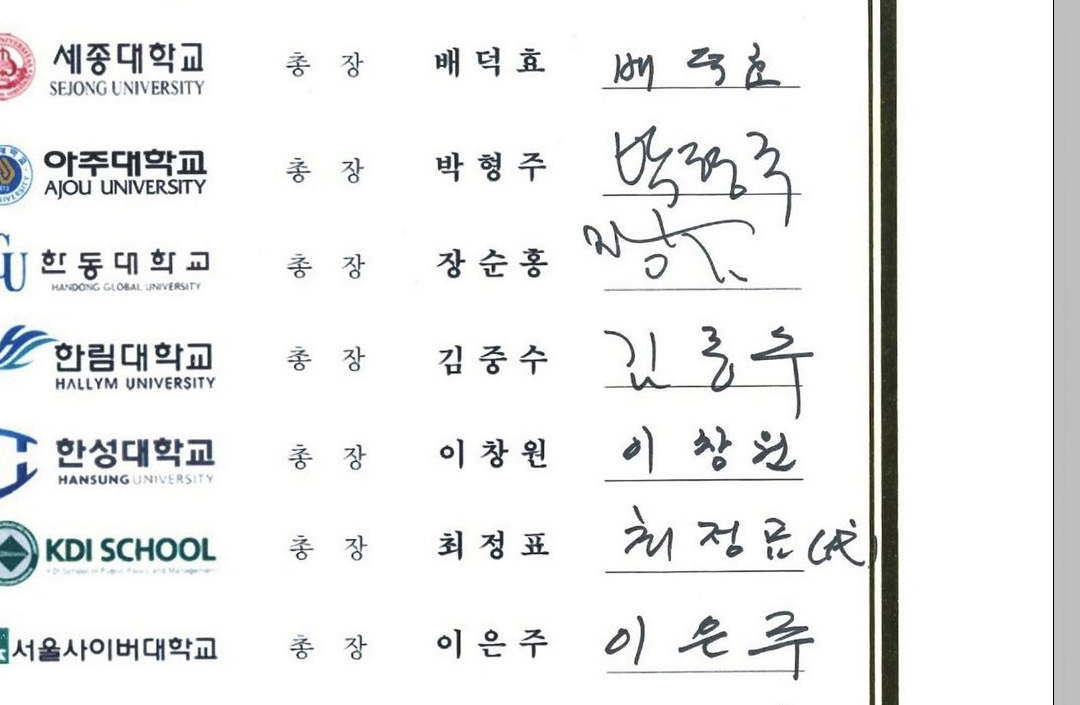 세종대학교 총 장 배덕효 배덕효
SEJONG UNIVERSITY
아주대학교 총 장 박형주 박형주
AJOU UNIVERSITY
한동대학교 총 장 장순홍
HANDONG GLOBAL UNIVERSITY
한림대학교 총 장 김중수 김중수
HALLYM UNIVERSITY
한성대학교 총 장 이창원 이창원
HANSUNG UNIVERSITY
KDI SCHOOL 총 장 최정표 최정표 (代)
KDI School of Public Policy and Management
서울사이버대학교 총 장 이은주 이은주